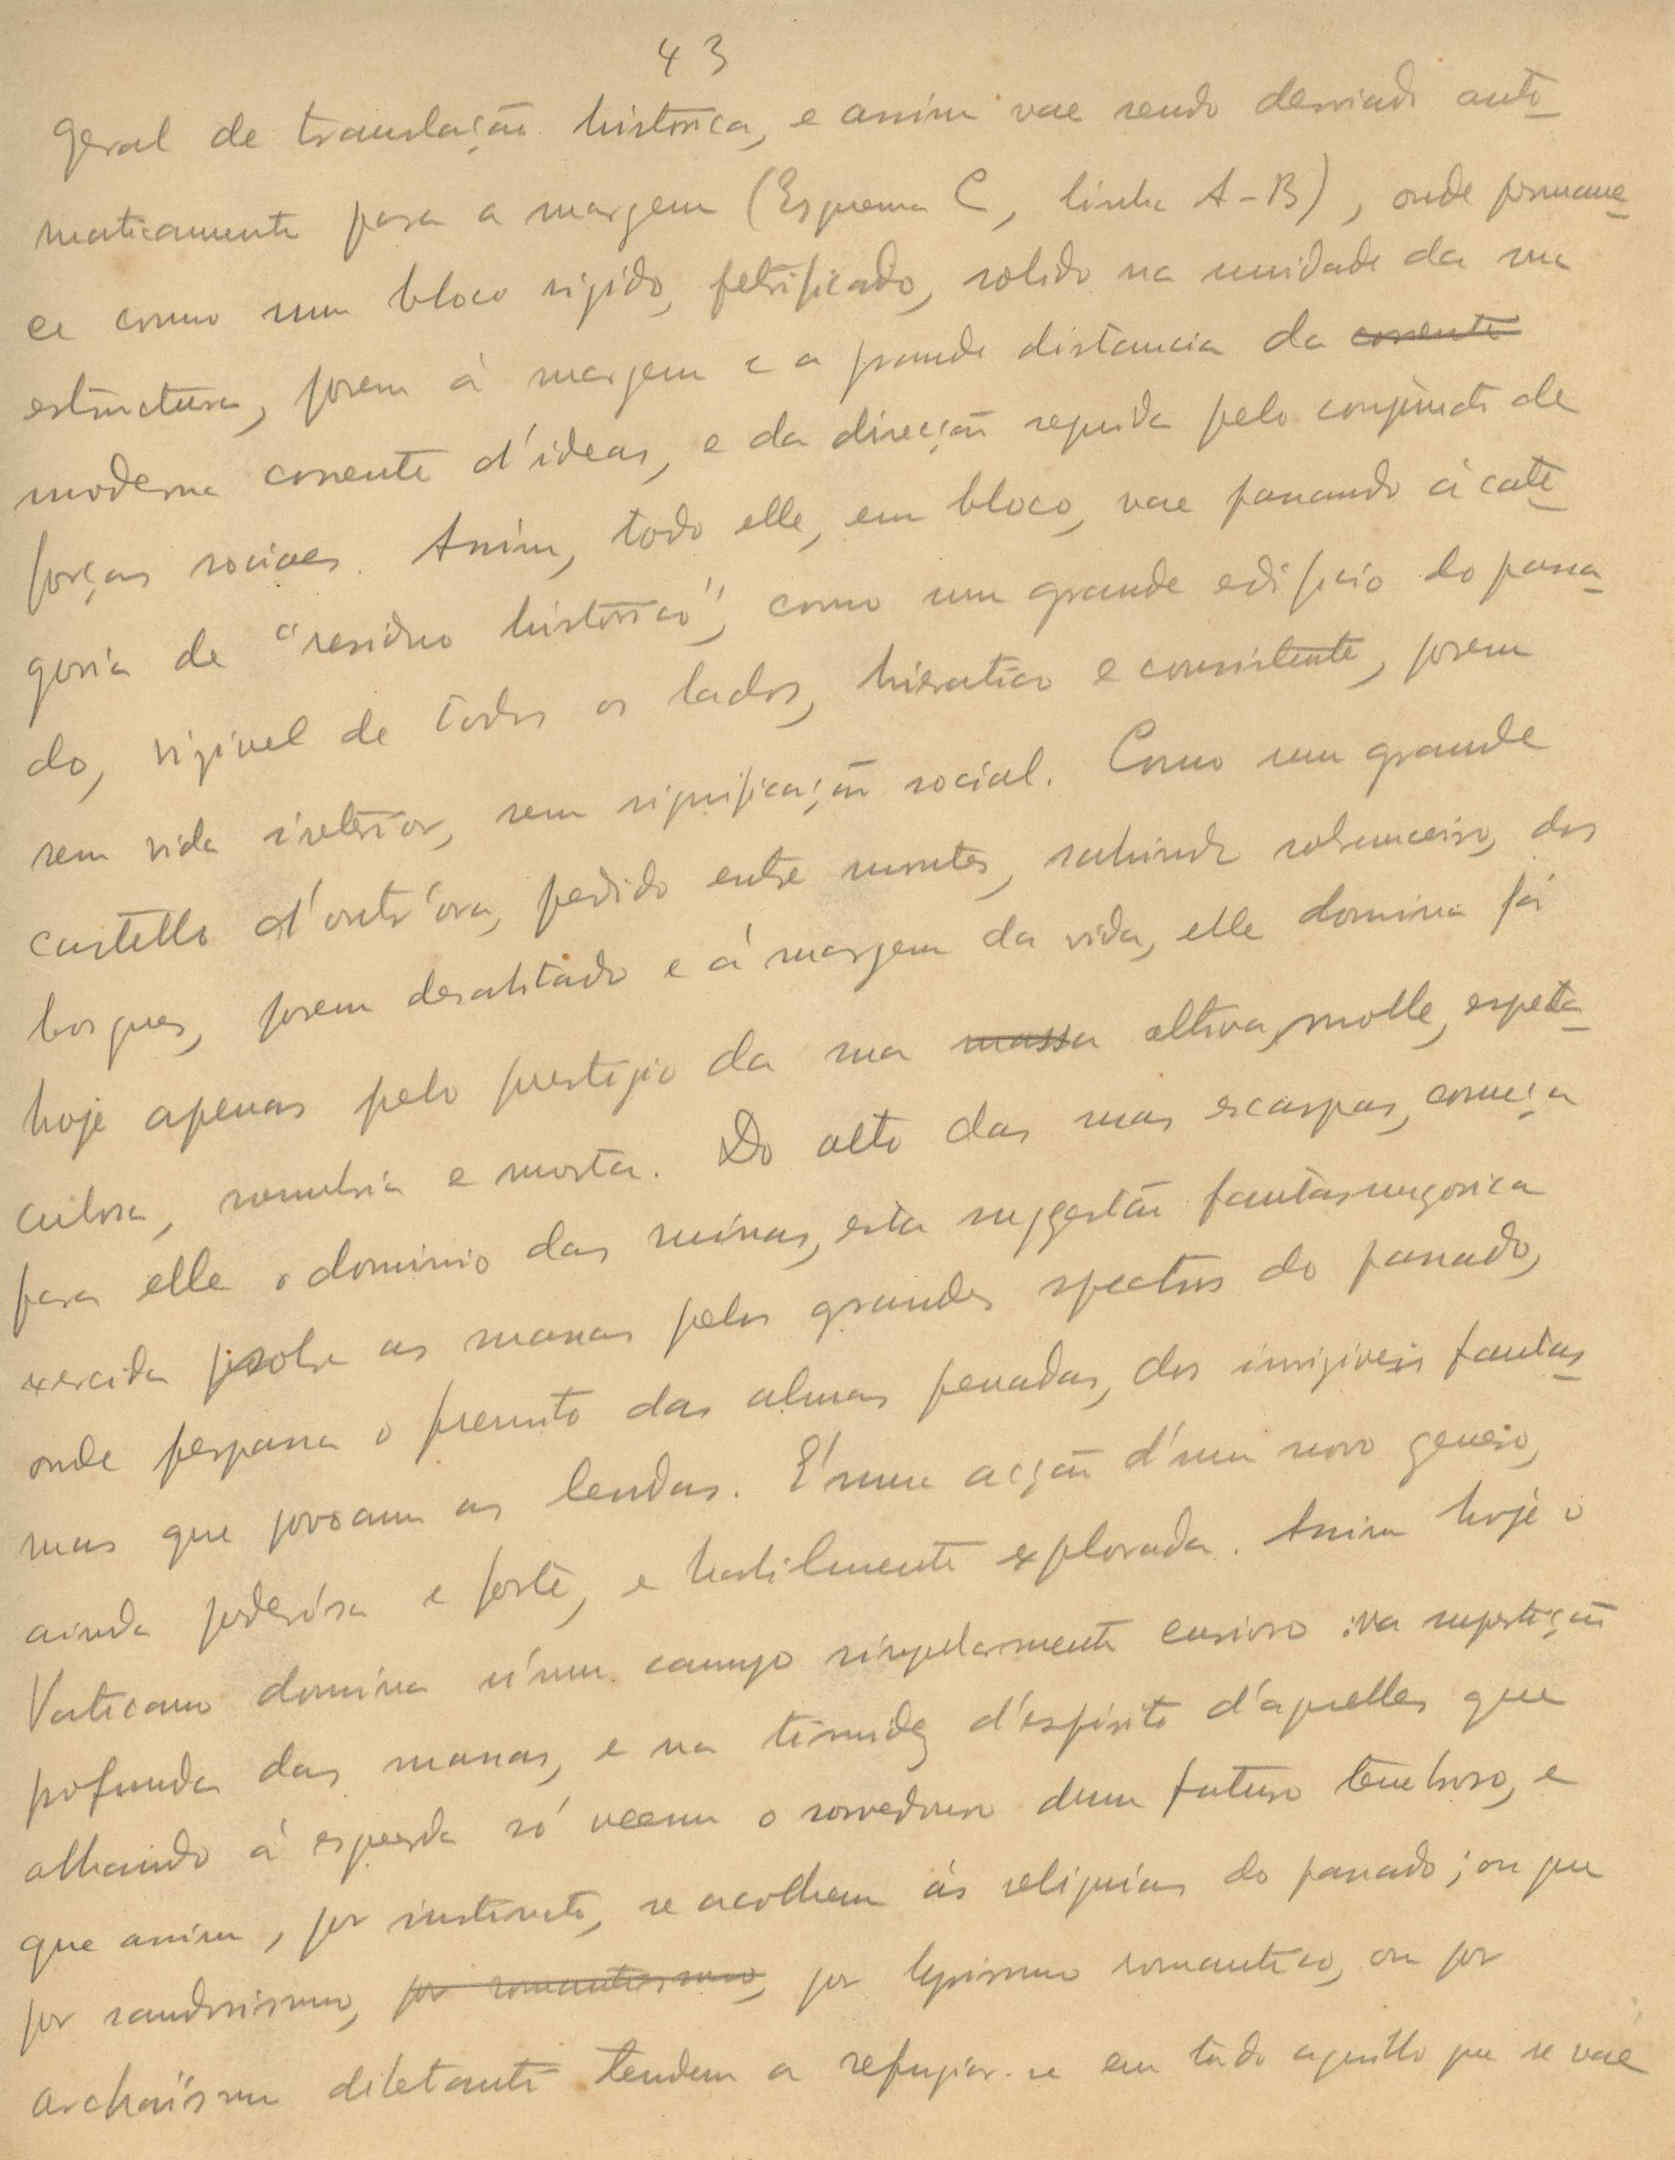 43
geral de translação historica, e assim vae sendo desviado auto-
maticamente para a margem (Esquema C, linha A-B), onde permane-
ce como um bloco rigido, petrificado, solido na unidade da sua
estructura, porem á margem e a grande distancia da corrente
moderna corrente d'ideas, e da direcção seguida pelo conjuncto de
forças sociaes. Assim, todo elle, em bloco, vae passando á cate-
goria de "residuo historico", como um grande edificio do passa-
do, visivel de todos os lados, hieratico e consistente, porem
sem vida interior, sem significação social. Como um grande
castello d'outr'ora, perdido entre montes, sahindo sobranceiro, dos
bosques, porem deshabitado e á margem da vida, elle domina já
hoje apenas pelo prestigio da sua massa altiva, molle, especta-
culosa, sombria e morta. Do alto das suas escarpas, começa
para elle o dominio das ruinas, esta suggestão fantasmagorica
exercida sobre as massas pelos grandes spectros do passado,
onde perpassa o frémito das almas penadas, dos invisiveis fantas-
mas que povoam as lendas. É uma acção d'um novo genero,
ainda poderósa e forte, e habilmente explorada. Assim hoje o
Vaticano domina n'um campo singularmente curioso: na superstição
profunda das massas, e na timidez d'espirito d'aquelles que
olhando á esquerda só veem o sorvedouro dum futuro tenebroso, e
que assim, por instincto, se acolhem ás reliquias do passado; ou que
por saudosismo, por romantismo, por lyrismo romantico, ou por
archaïsmo diletante tendem a refugiar-se em tudo aquillo que se vae